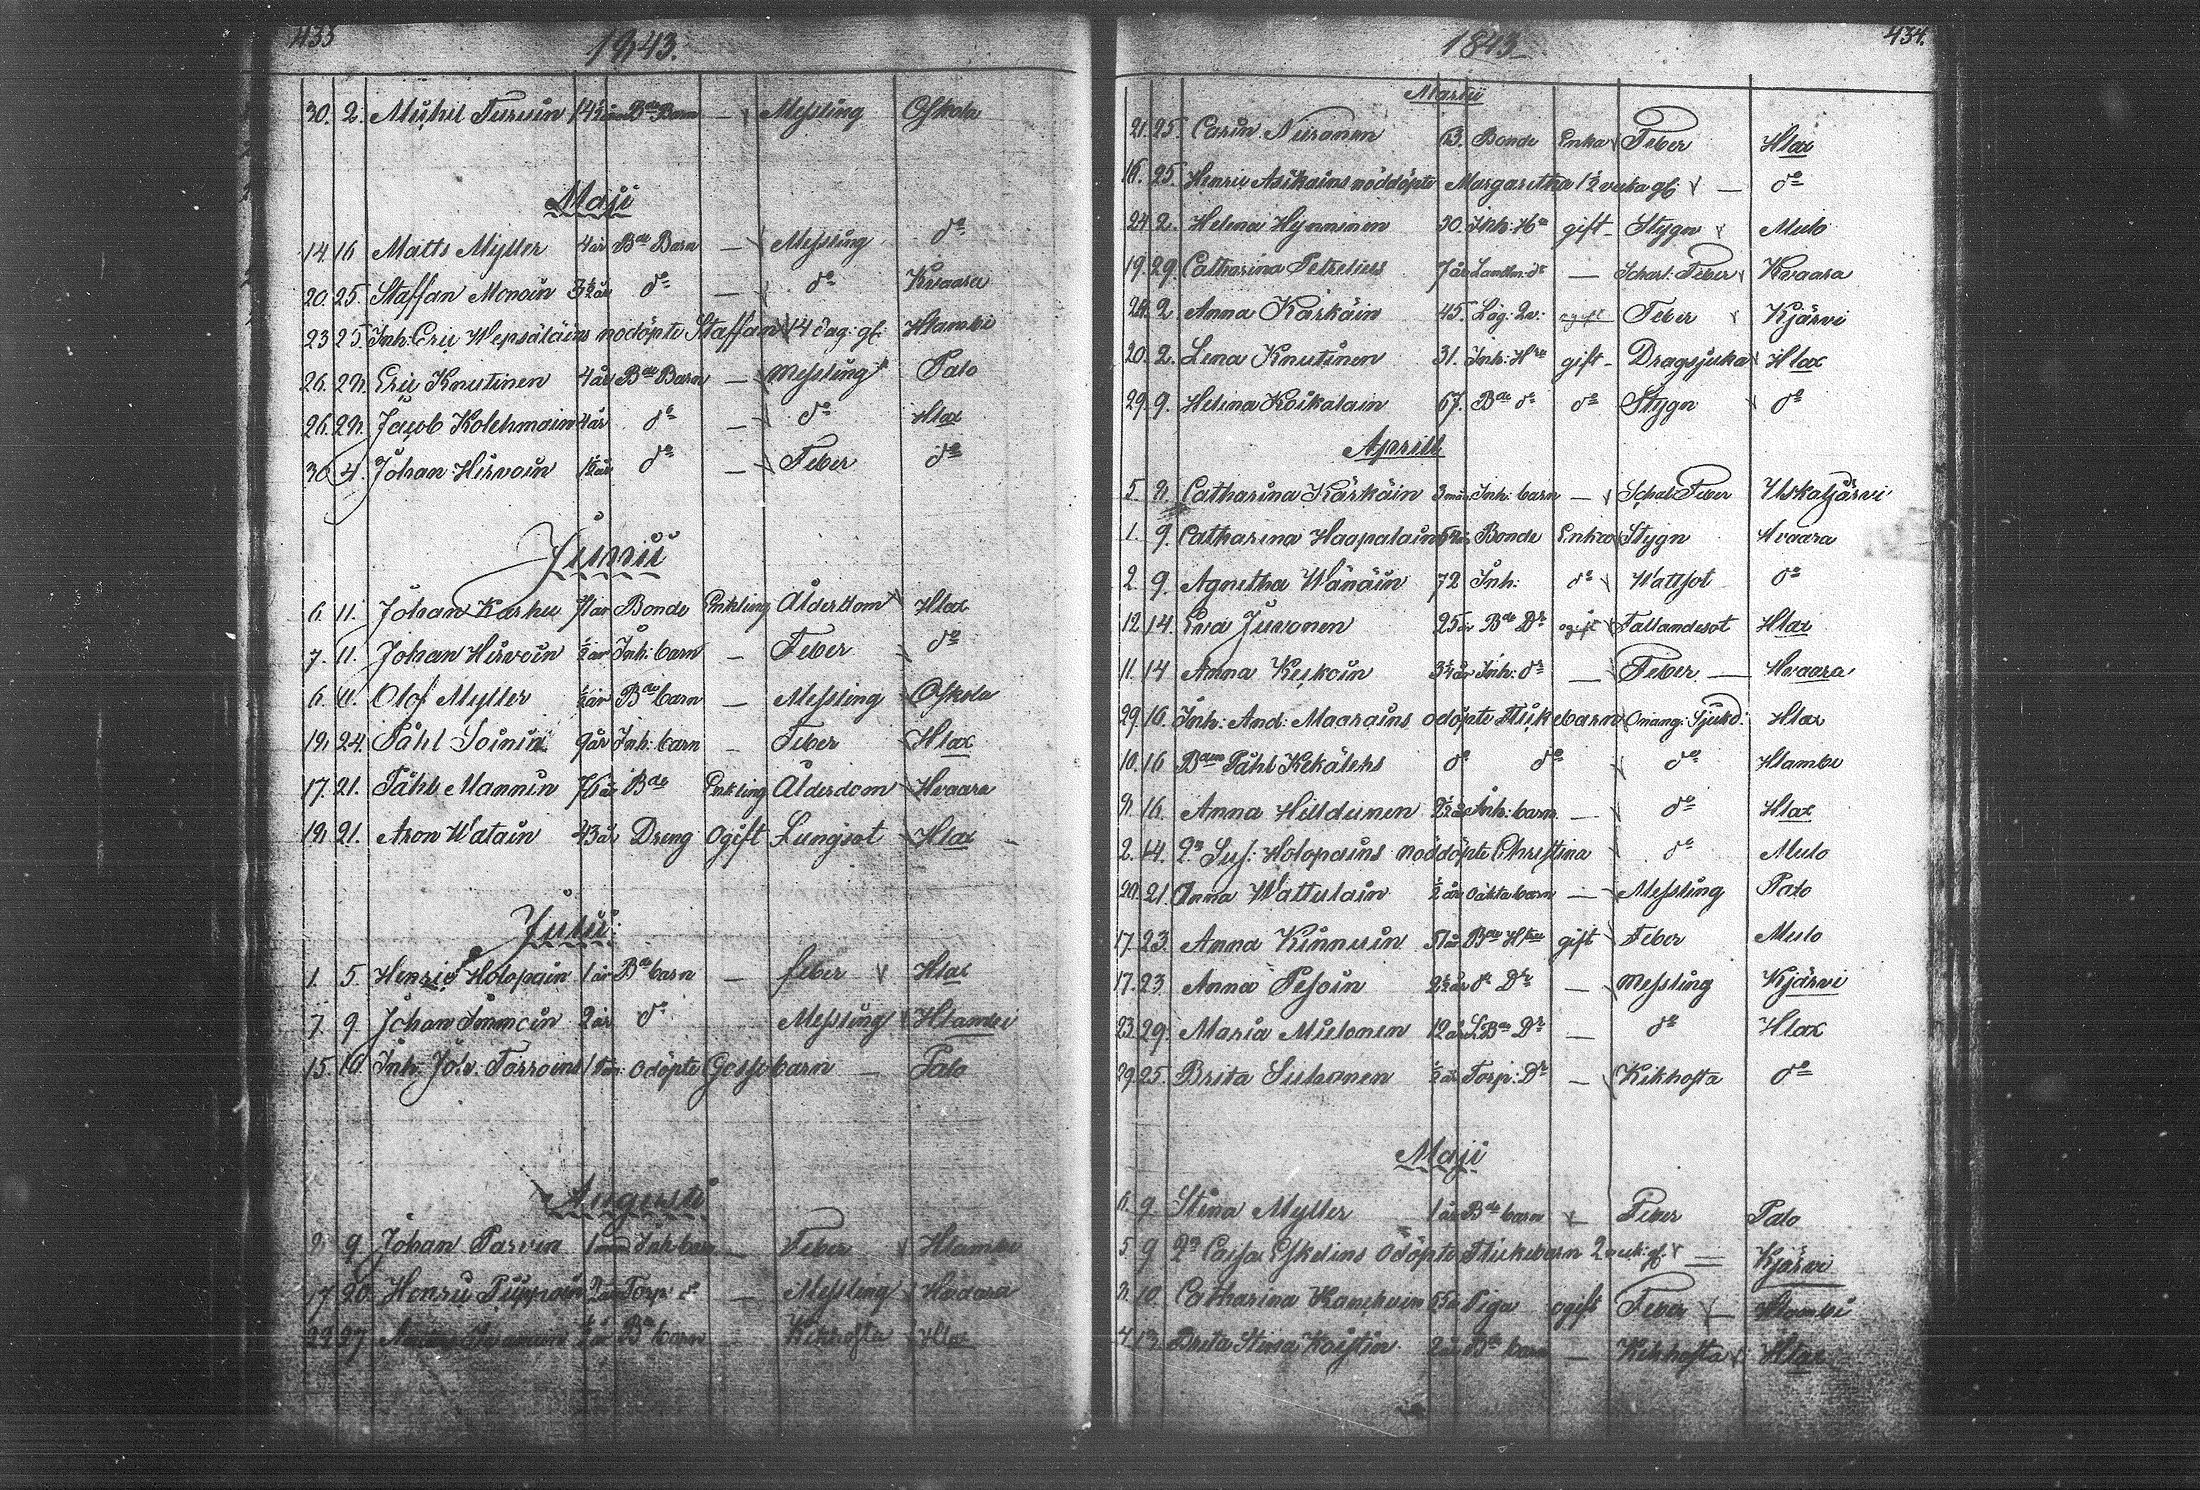 433
1843.
30. 2. Michil Turuin 14 Bde Barn — Messling Oskola
Maji
14 16 Matts Myller 4 år Bde Barn — Messling do
20 25. Staffan Monoin 3½ år do — do Kvaara
23 25. Inh: Eric Wepsäläins nödöpte Staffan 14 dag: gl: Hlambi
26. 28. Eric Knutinen 4 år Bde Barn — Messling Palo
26. 28. Jacob Kolehmain 4 år do — do Hlax
30 4. Johan Hirvoin 1½ år do — Feber do
Junii
6. 11. Johan Karhu 71 år Bonde Enkling Ålderdom Hlax
7. 11. Johan Hirvoin ½ år Inh: barn — Feber do
6. 11. Olof Myller ½ år Bde barn — Messling Oskola
18. 24. Påhl Soinin 9 år Inh: barn — Feber Hlax
17. 21. Påhl Mannin 76 år Bde Enkling Ålderdom Hvaara
18. 21. Aron Watain 43 år Dreng Ogift Lungsot Hlax
Julii
1. 5. Henric Holopain 1 år Bde barn — feber Hlax
7. 9. Johan Immoin 2 år do Messling Hlambi
15. 16. Inh: Joh. Torroins 1 Tim: odöpte Gossebarn — Palo
Augusti
8. 9. Johan Parvin 1 mån Inh: barn — Feber Hlambi
17 20. Henric Piippoin 2 år Torp: do — Messling Hvaara
22 27. Bde barn — Kikhosta Hlax
434.
1843
Martii
21. 25. Carin Nuronen 63. Bonde Enka Feber Hlax
16. 25. Henric Asikains nöddöpte Margaretha 1½ veka gl: — do
24. 2. Helena Hynninen 30. Inh: Hu gift — Stygn Mulo
19. 29. Catharina Petrelius 7 år — Scharl: Feber Kvaara
24. 2. Anna Kärkäin 45. ogift Feber Kjärvi
20. 2. Lena Knutinen 31. Inh: Hru gift — Dragsjuka Hlax
29. 9. Helena Koikalain 67. Bde do do Stygn do
Aprill
5. 8. Catharina Kärkäin 3 mån Inh: barn — Feber Uskaljärvi
1. 9. Catharina Haapalain Bonde Enka Stygn Hvaara
2. 9. Agnetha Wänäin 72 Inh: do Wattsot do
12. 14. Eva Juvonen 25 år Bde Dr ogift Fallandesot Hlax
11. 14 Anna Keskoin 3¼ år Inh: dr — Feber — Hvaara
29. 16. Inh: And: Maarains odöpte Flickebarn Onäng: Sjukd: Hlax
10. 16 Påhl Kekälehs do do do Hlambi
8. 16. Anna Hilldunen Inh: barn — do Hlax
2. 14. Holopains nöddöpte Christina do Mulo
20. 21. Anna Wattulain ½ år oäkta barn — Messling Palo
17. 23. Anna Kinnuin 51 år Bde Hru gift Feber Mulo
17. 23. Anna Pesoin 2½ år dr Dr — Messling Kjärvi
23. 29. Maria Mielonen 12 år Dr — do Hlax
29. 25. Brita Suhonen ½ år Torp: Dr — Kikhosta do
Maji
6. 9. Stina Myller 1 år Bde barn Feber Palo
5. 9 Caisa Eskelins odöpte Flickebarn 2 Kjärvi
8. 10. Catharina Piga ogift Feber — Hlambi
4. 13. Brita Stina Koistin 2 år Bde barn — Kikhosta Hlax